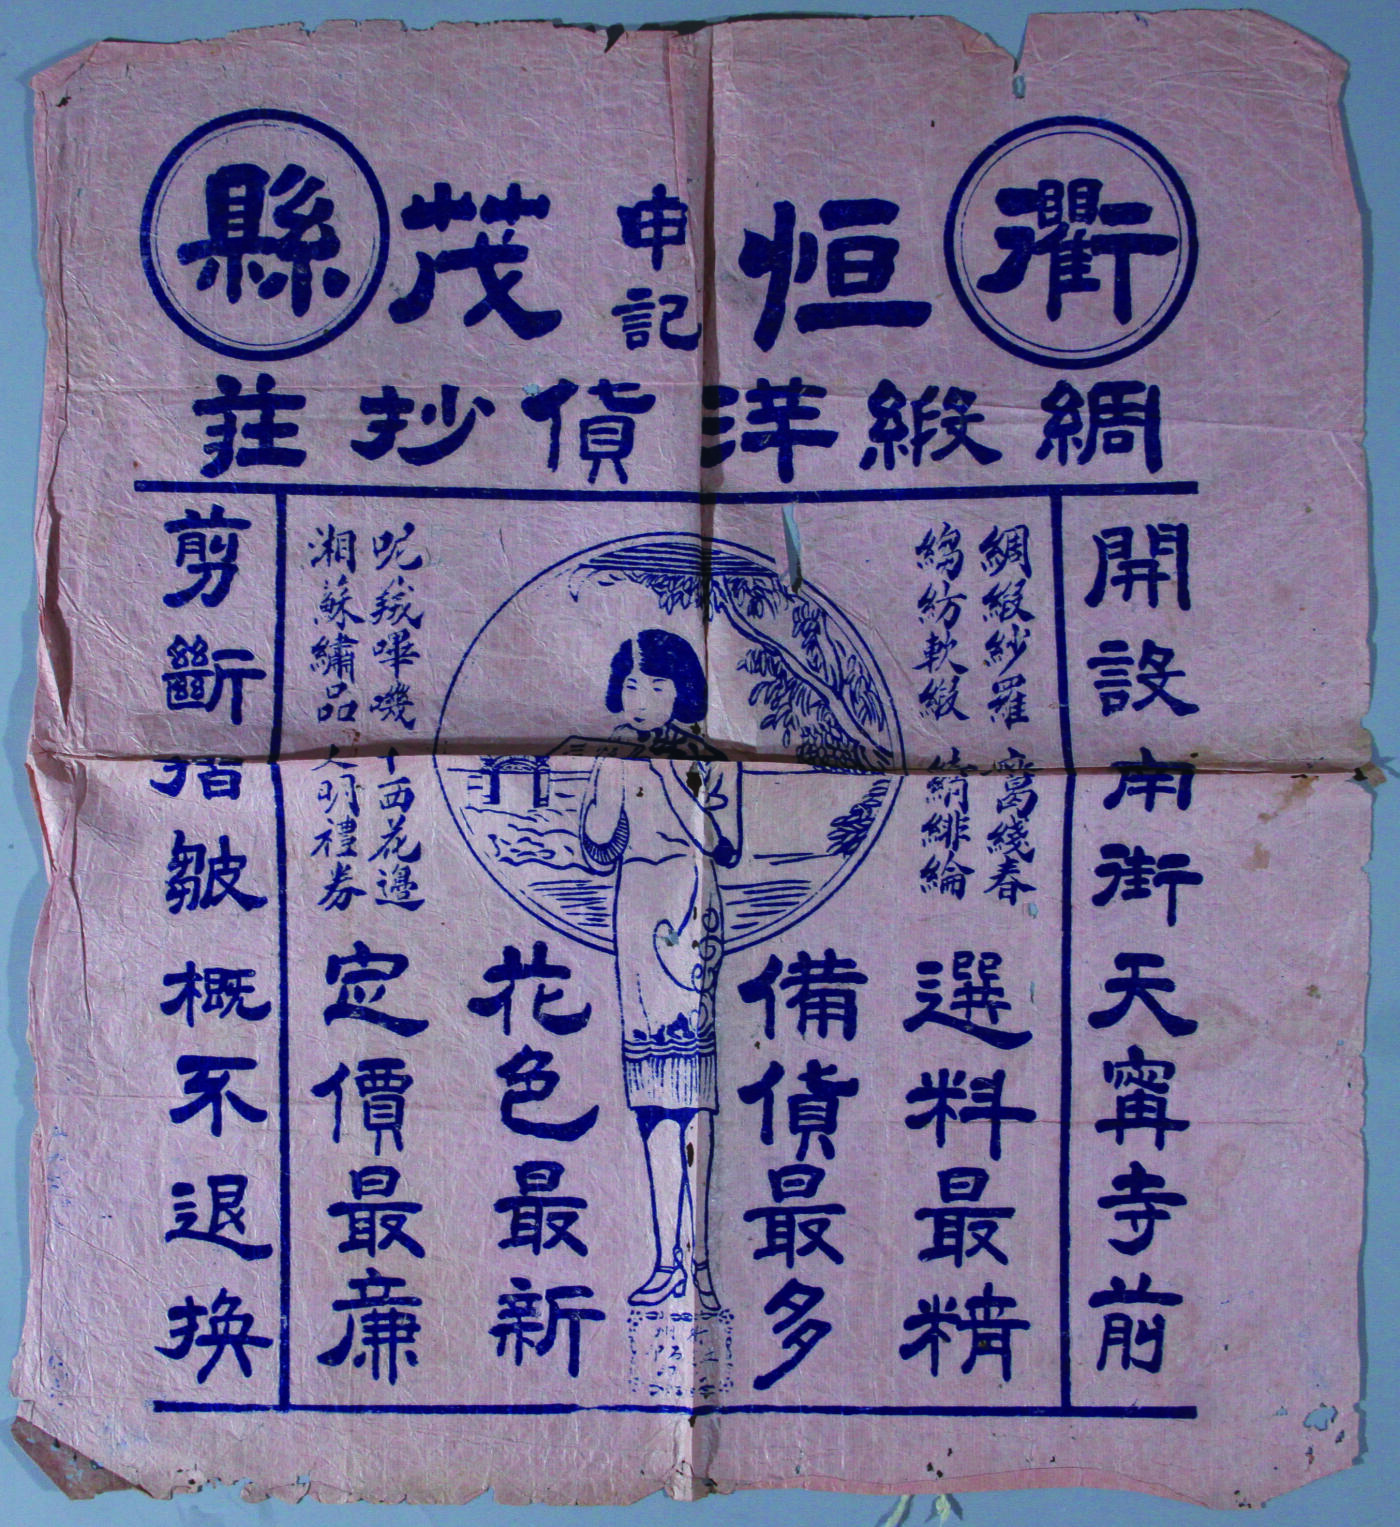 衢恒申記茂縣
綢緞洋貨抄莊
開設南街天寗寺前
綢緞紗羅 窩綫春
縐紡軟緞 綃緋綸
選料最精
備貨最多
花色最新
定價最廉
呢羢嗶嘰 中西花邊
湘蘇繡品 文明禮券
剪斷摺皺概不退換